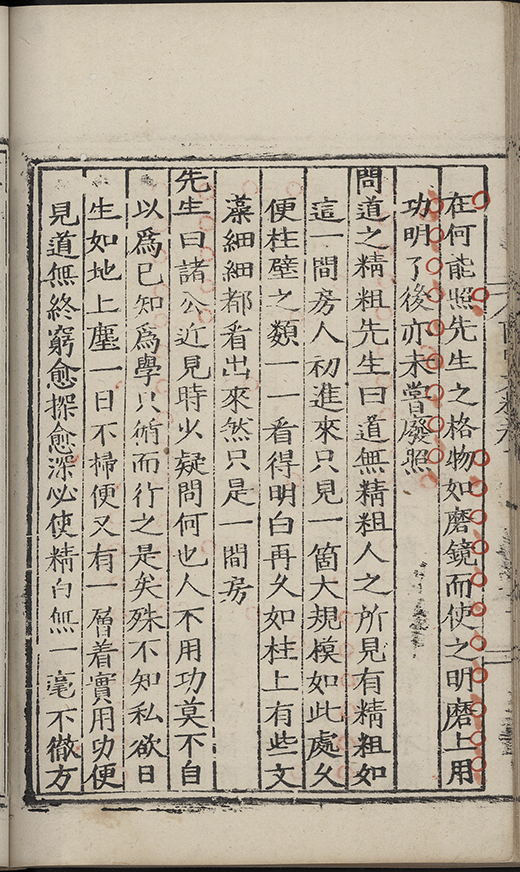 在何能照先生之格物如磨鏡而使之明磨上用
功明了後亦未嘗廢照
問道之精粗先生曰道無精粗人之所見有精粗如
這一間房人初進來只見一箇大規模如此處久
便柱壁之類一一看得明白再久如柱上有些文
藻細細都看出來然只是一間房
先生曰諸公近見時少疑問何也人不用功莫不自
以爲已知爲學只循而行之是矣殊不知私欲日
生如地上塵一日不掃便又有一層着實用功便
見道無終窮愈探愈深必使精白無一毫不徹方